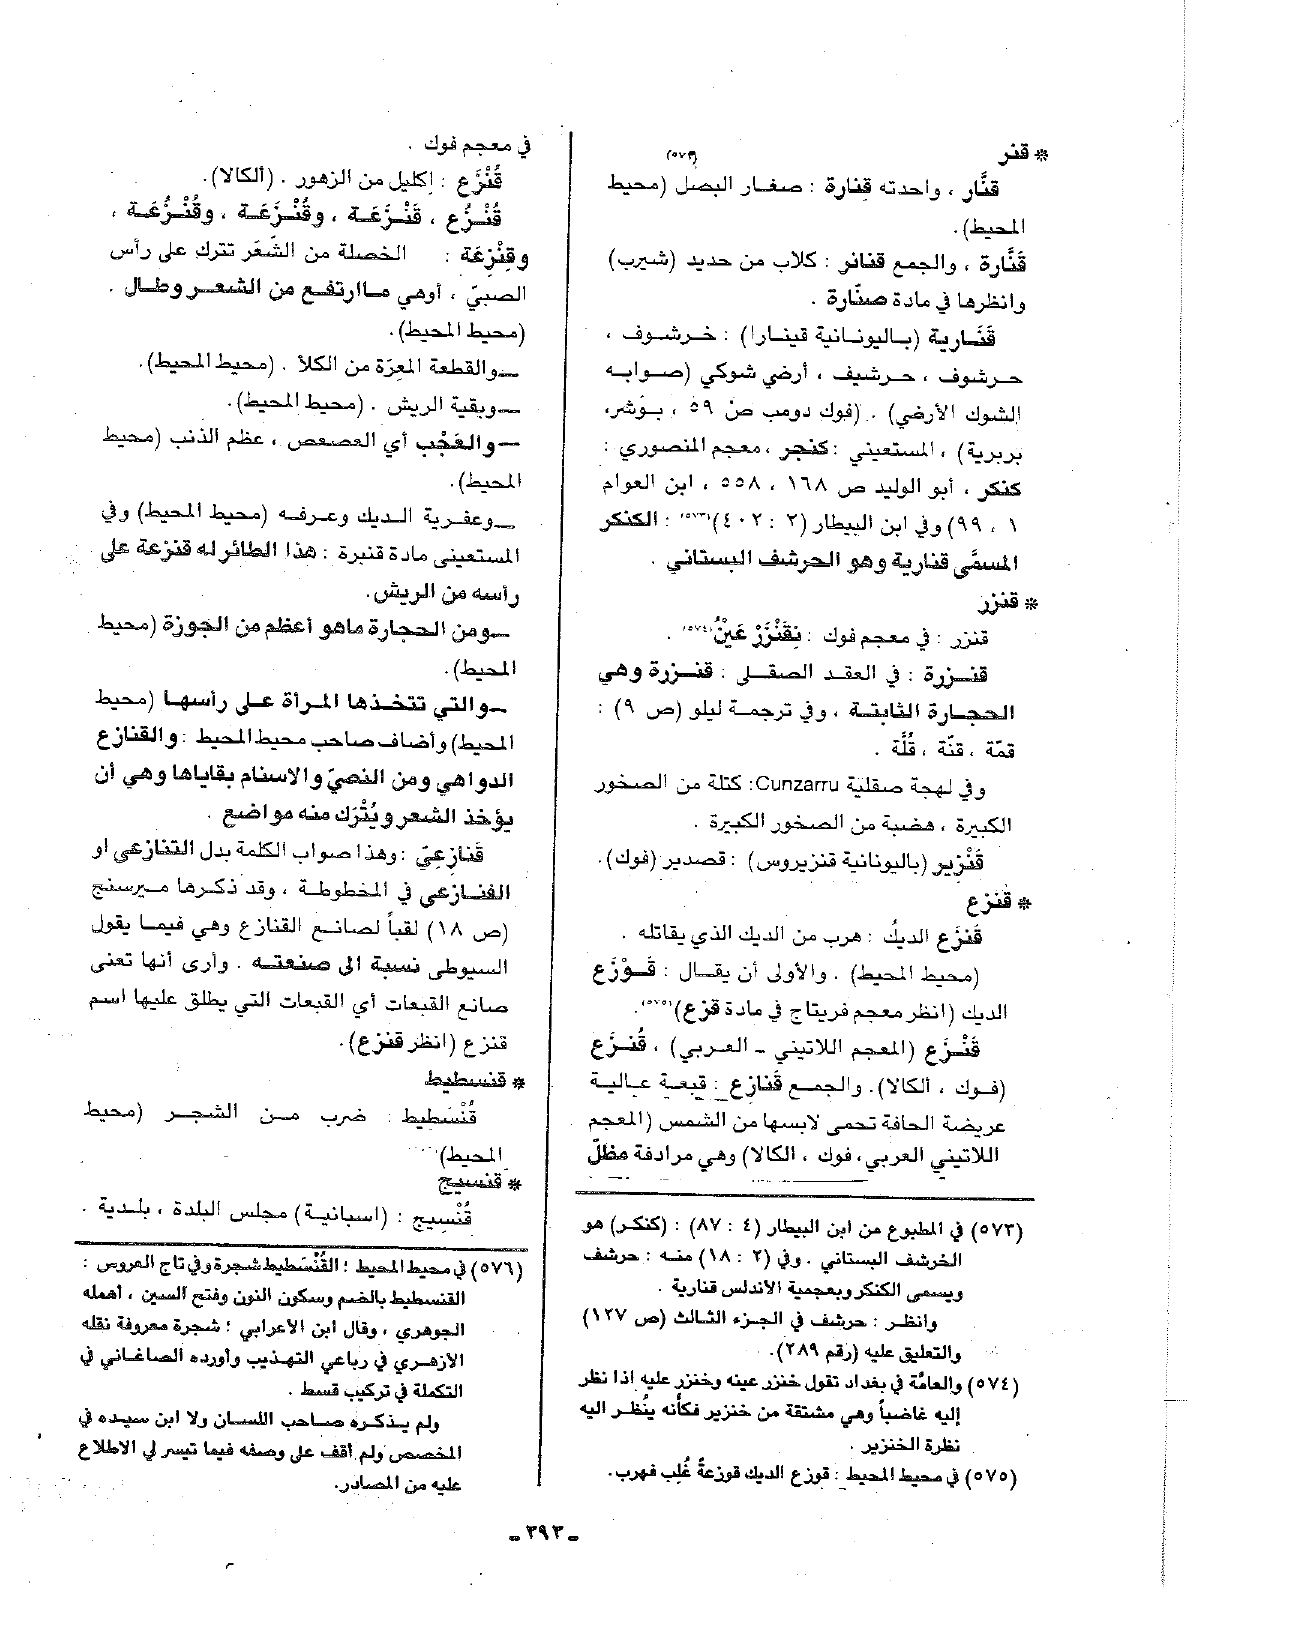 * قنر
(٥٧٢)
قنَّار ، واحدته قنارة : صغار البصل (محيط
المحيط).
قَنَّارة ، والجمع قنانر : كلاب من حديد (شيرب)
وانظرها في مادة صنّارة .
قَنَّارية (باليونانية قينارا) : خرشوف ،
حرشوف ، حرشيف ، أرضي شوكي (صوابه
الشوك الأرضي) . (فوك دومب ص ٥٩ ، بوشر،
بربرية) ، المستعيني : كنجر ، معجم المنصوري :
كنكر ، أبو الوليد ص ١٦٨ ، ٥٥٨ ، ابن العوام
١ ، ٩٩) وفي ابن البيطار (٢ : ٤٠٢)(٥٧٣) : الكنكر
المسمَّى قنارية وهو الحرشف البستاني .
* قنزر
قنزر : في معجم فوك : نِقَنْزَرْ عَيْنُ(٥٧٤) .
قنزرة : في العقد الصقلي : قنزرة وهي
الحجارة الثابتة ، وفي ترجمة ليلو (ص ٩) :
قمّة ، قنّة ، قُلَّة .
وفي لهجة صقلية Cunzarru: كتلة من الصخور
الكبيرة ، هضبة من الصخور الكبيرة .
قَنْزير (باليونانية قنزيروس) : قصدير (فوك).
* قنزع
قَنزَع الديكُ : هرب من الديك الذي يقاتله .
(محيط المحيط) . والأولى أن يقال : قَوْزَع
الديك (انظر معجم فريتاج في مادة قزع)(٥٧٥).
قَنْزَع (المعجم اللاتيني - العربي) ، قُنزَع
(فوك ، ألكالا). والجمع قَنازع : قبعة عالية
عريضة الحافة تحمى لابسها من الشمس (المعجم
اللاتيني العربي، فوك ، الكالا) وهي مرادفة مظلّ
(٥٧٣) في المطبوع من ابن البيطار (٤ : ٨٧) : (كنكر) هو
الخرشف البستاني . وفي (٢ : ١٨) منه : حرشف
ويسمى الكنكر وبعجمية الاندلس قنارية .
وانظر : حرشف في الجزء الثالث (ص ١٢٧)
والتعليق عليه (رقم ٢٨٩).
(٥٧٤) والعامّة في بغداد تقول خنزر عينه وخنزر عليه اذا نظر
إليه غاضباً وهي مشتقة من خنزير فكأنه ينظر اليه
نظرة الخنزير .
(٥٧٥) في محيط المحيط : قوزع الديك قوزعةً غُلِب فهرب.
في معجم فوك .
قُنْزَع : إكليل من الزهور . (ألكالا).
قُنْزُع ، قَنْزَعَة ، وقُنْزَعَة ، وقُنْزُعَة ،
وقِنْزِعَة : الخصلة من الشَعَر تترك على رأس
الصبيّ ، أوهي ماارتفع من الشعر وطال .
(محيط المحيط).
ــ والقطعة المعزة من الكلأ . (محيط المحيط).
ــ وبقية الريش . (محيط المحيط).
ــ والعَجْب أي العصعص ، عظم الذنب (محيط
المحيط).
ــ وعفرية الديك وعرفه (محيط المحيط) وفي
المستعيني مادة قنبرة : هذا الطائر له قنزعة على
رأسه من الريش.
ــ ومن الحجارة ماهو أعظم من الجوزة (محيط
المحيط).
ــ والتي تتخذها المرأة على رأسها (محيط
المحيط) وأضاف صاحب محيط المحيط : والقنازع
الدواهي ومن النصيّ والاسنام بقاياها وهي أن
يؤخذ الشعر ويُتْرَك منه مواضع .
قَنازعيّ : وهذا صواب الكلمة بدل التنازعي او
الفنازعي في المخطوطة ، وقد ذكرها ميرسنج
(ص ١٨) لقباً لصانع القنازع وهي فيما يقول
السيوطي نسبة الى صنعته . وأرى أنها تعنى
صانع القبعات أي القبعات التي يطلق عليها اسم
قنزع (انظر قنزع).
* قنسطيط
قُنْسْطيط : ضرب من الشجر (محيط
المحيط)
* قنسيج
قُنْسيج : (اسبانية) مجلس البلدة ، بلدية .
(٥٧٦) في محيط المحيط : القُنْسَطيط شجرة وفي تاج العروس :
القنسطيط بالضم وسكون النون وفتح السين ، أهمله
الجوهري ، وقال ابن الأعرابي : شجرة معروفة نقله
الأزهري في رباعي التهذيب وأورده الصاغاني في
التكملة في تركيب قسط .
ولم يذكره صاحب اللسان ولا ابن سيده في
المخصص ولم أقف على وصفه فيما تيسر لي الاطلاع
عليه من المصادر.
ـ ٣٩٣ ـ